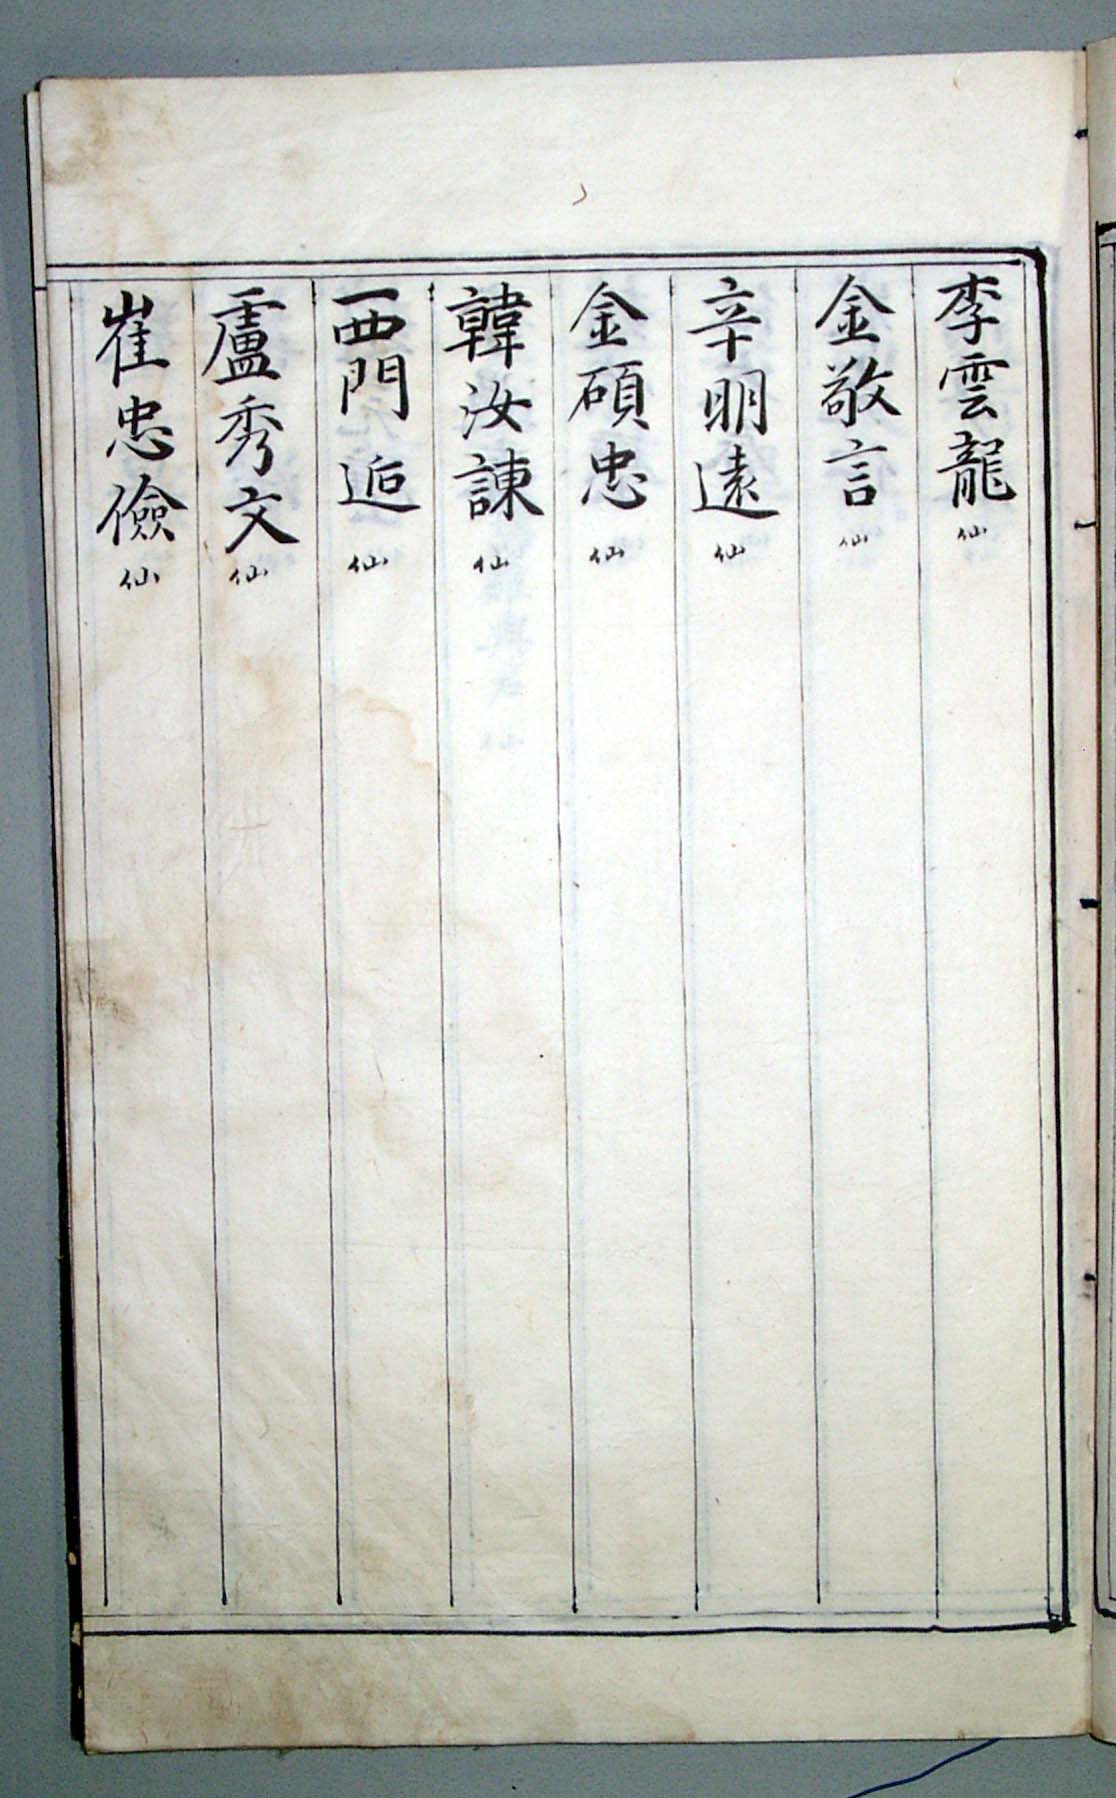 李雲龍仙
金敬言仙
辛明遠仙
金碩忠仙
韓汝諫仙
西門逅仙
盧秀文仙
崔忠儉仙